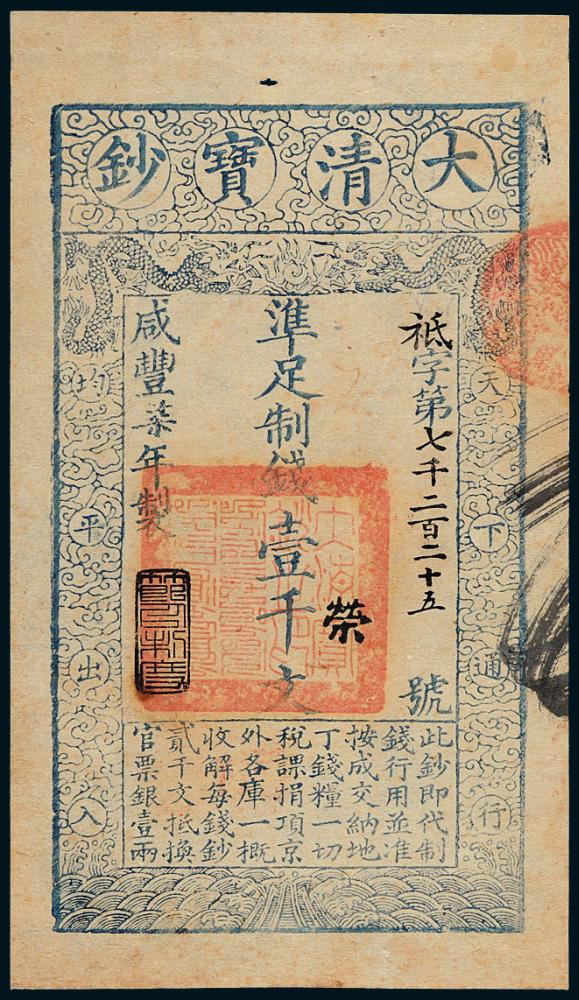 大清寶鈔
天下通行
祗字第七千二百二十五號
準足制錢壹千文
榮
咸豐柒年製
均平出入
此鈔即代制
錢行用並准
按成交納地
丁錢糧一切
稅課捐項京
外各庫一概
收解每錢鈔
貳千文抵換
官票銀壹兩